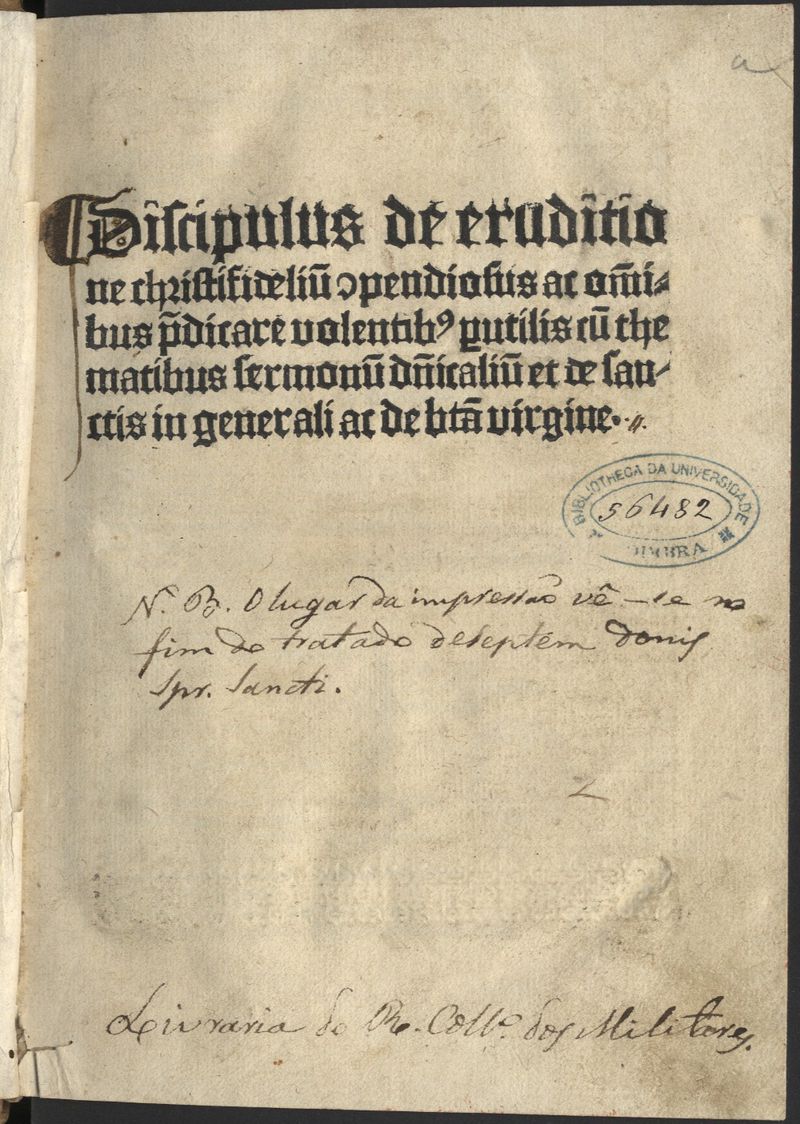 a
Discipulus de eruditio
ne christifideliū ɔpendiosus ac om̄i⸗
bus p̄dicare volentibꝰ ꝑutilis cū the
matibus sermonū dn̄icaliū et de san⸗
ctis in generali ac de btā virgine.
BIBLIOTHECA DA UNIVERSIDADE
56482
COIMBRA
N. B. O lugar da impressão vê-se no
fim do tratado de septem donis
Spr. Sancti.
Livraria do R. Collo. dos Militares.